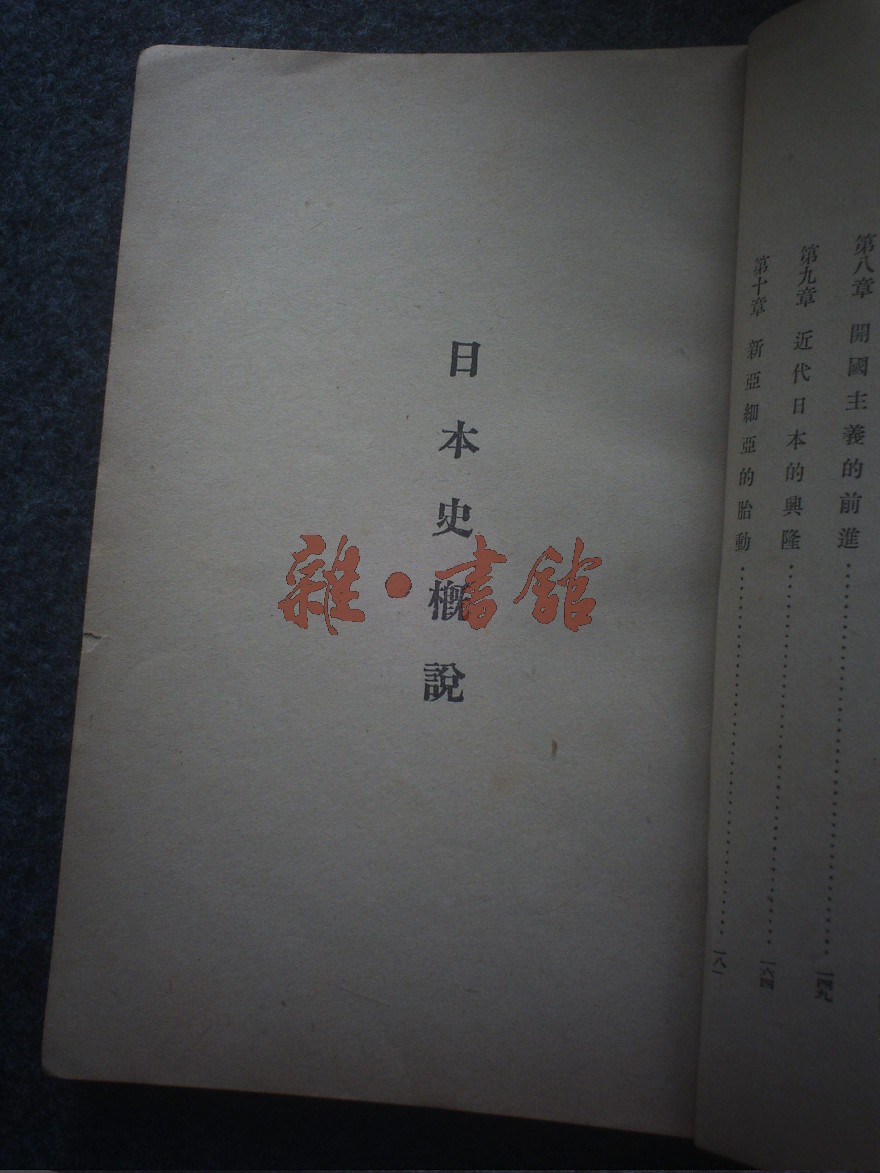 第八章 開國主義的前進 一四九
第九章 近代日本的興隆 一六四
第十章 新亞細亞的胎動 一八一
日本史概說
雜·書館